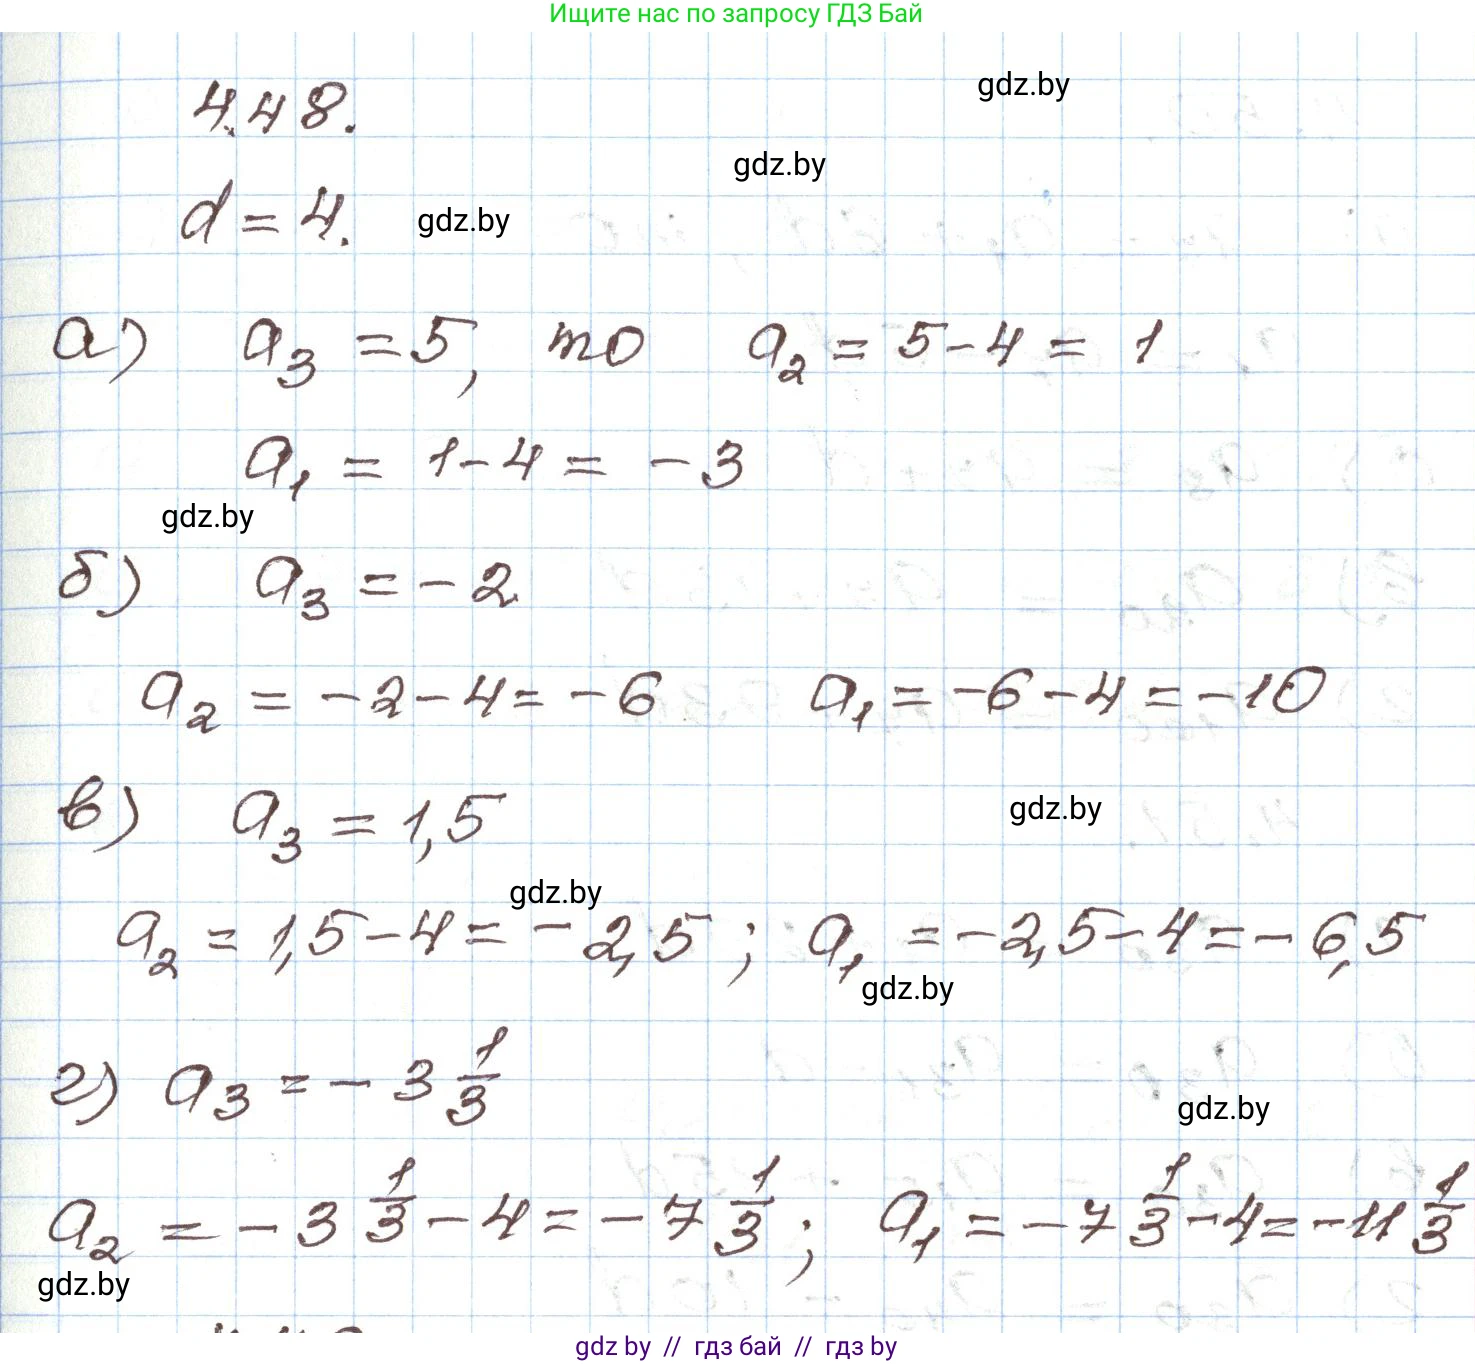 Ищите нас по запросу ГДЗ Бай
4.48.
gdz.by
gdz.by
d = 4.
gdz.by
а) a₃ = 5, то a₂ = 5 - 4 = 1
a₁ = 1 - 4 = -3
gdz.by
б) a₃ = -2
a₂ = -2 - 4 = -6 a₁ = -6 - 4 = -10
в) a₃ = 1,5
gdz.by
gdz.by
a₂ = 1,5 - 4 = -2,5; a₁ = -2,5 - 4 = -6,5
gdz.by
г) a₃ = -3 1/3
gdz.by
a₂ = -3 1/3 - 4 = -7 1/3; a₁ = -7 1/3 - 4 = -11 1/3
gdz.by
gdz by // гдз бай // гдз by